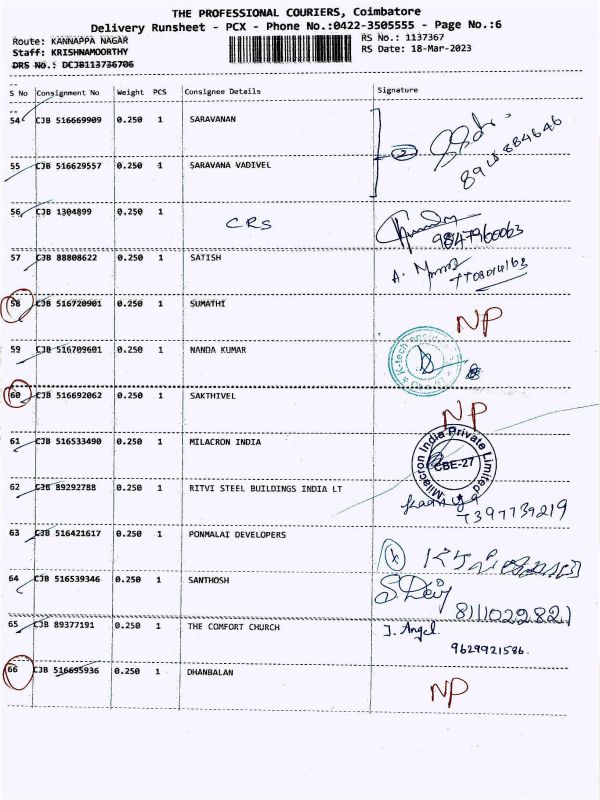 THE PROFESSIONAL COURIERS, Coimbatore
Delivery Runsheet - PCX - Phone No.:0422-3505555 - Page No.:6
Route: KANNAPPA NAGAR RS No.: 1137367
Staff: KRISHNAMOORTHY RS Date: 18-Mar-2023
DRS No.: DCJB113736706
S No Consignment No Weight PCS Consignee Details Signature
54 CJB 516669909 0.250 1 SARAVANAN
2
55 CJB 516629557 0.250 1 SARAVANA VADIVEL
56 CJB 1304899 0.250 1 CRS
9847960063
57 CJB 88808622 0.250 1 SATISH
58 CJB 516720901 0.250 1 SUMATHI NP
59 CJB 516709601 0.250 1 NANDA KUMAR
60 CJB 516692062 0.250 1 SAKTHIVEL NP
61 CJB 516533490 0.250 1 MILACRON INDIA Milacron India Private Limited CBE-27
62 CJB 89292788 0.250 1 RITVI STEEL BUILDINGS INDIA LT
7397739219
63 CJB 516421617 0.250 1 PONMALAI DEVELOPERS
64 CJB 516539346 0.250 1 SANTHOSH S. Devi
8111022821
65 CJB 89377191 0.250 1 THE COMFORT CHURCH J. Angel
9629921586
66 CJB 516695936 0.250 1 DHANBALAN NP